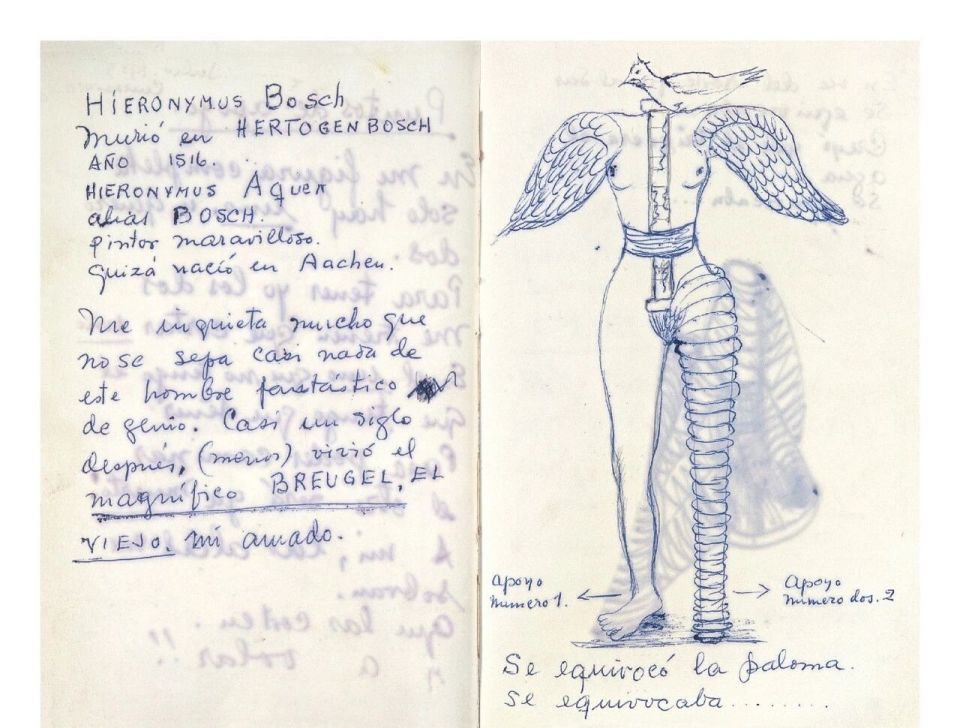 HIERONYMUS Bosch
Murió en HERTOGENBOSCH
AÑO 1516.
HIERONYMUS AQUEN
alias BOSCH.
pintor maravilloso.
Quizá nació en Aachen.
Me inquieta mucho que
no se sepa casi nada de
este hombre fantástico
de genio. Casi un siglo
después, (menos) vivió el
magnífico BREUGEL, EL
VIEJO. mi amado.
apoyo
numero 1.
apoyo
numero dos. 2
Se equivocó la paloma.
Se equivocaba........